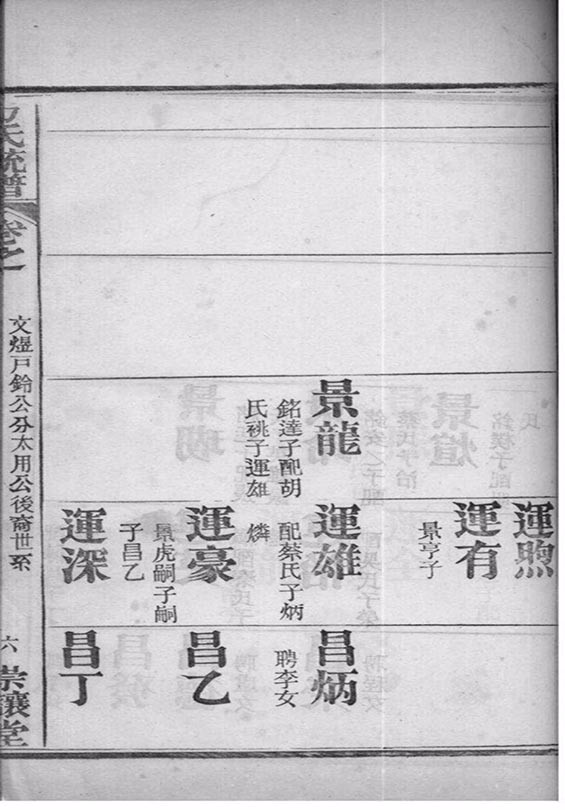 景龍
銘達子配胡
氏祧子運雄
運煦
運有
景亨子
運雄
配蔡氏子炳
燐
運豪
景虎嗣子嗣
子昌乙
運深
昌炳
聘李女
昌乙
昌丁
氏統譜
卷之
文煜戶鈴公分太用公後裔世系
六
崇讓堂